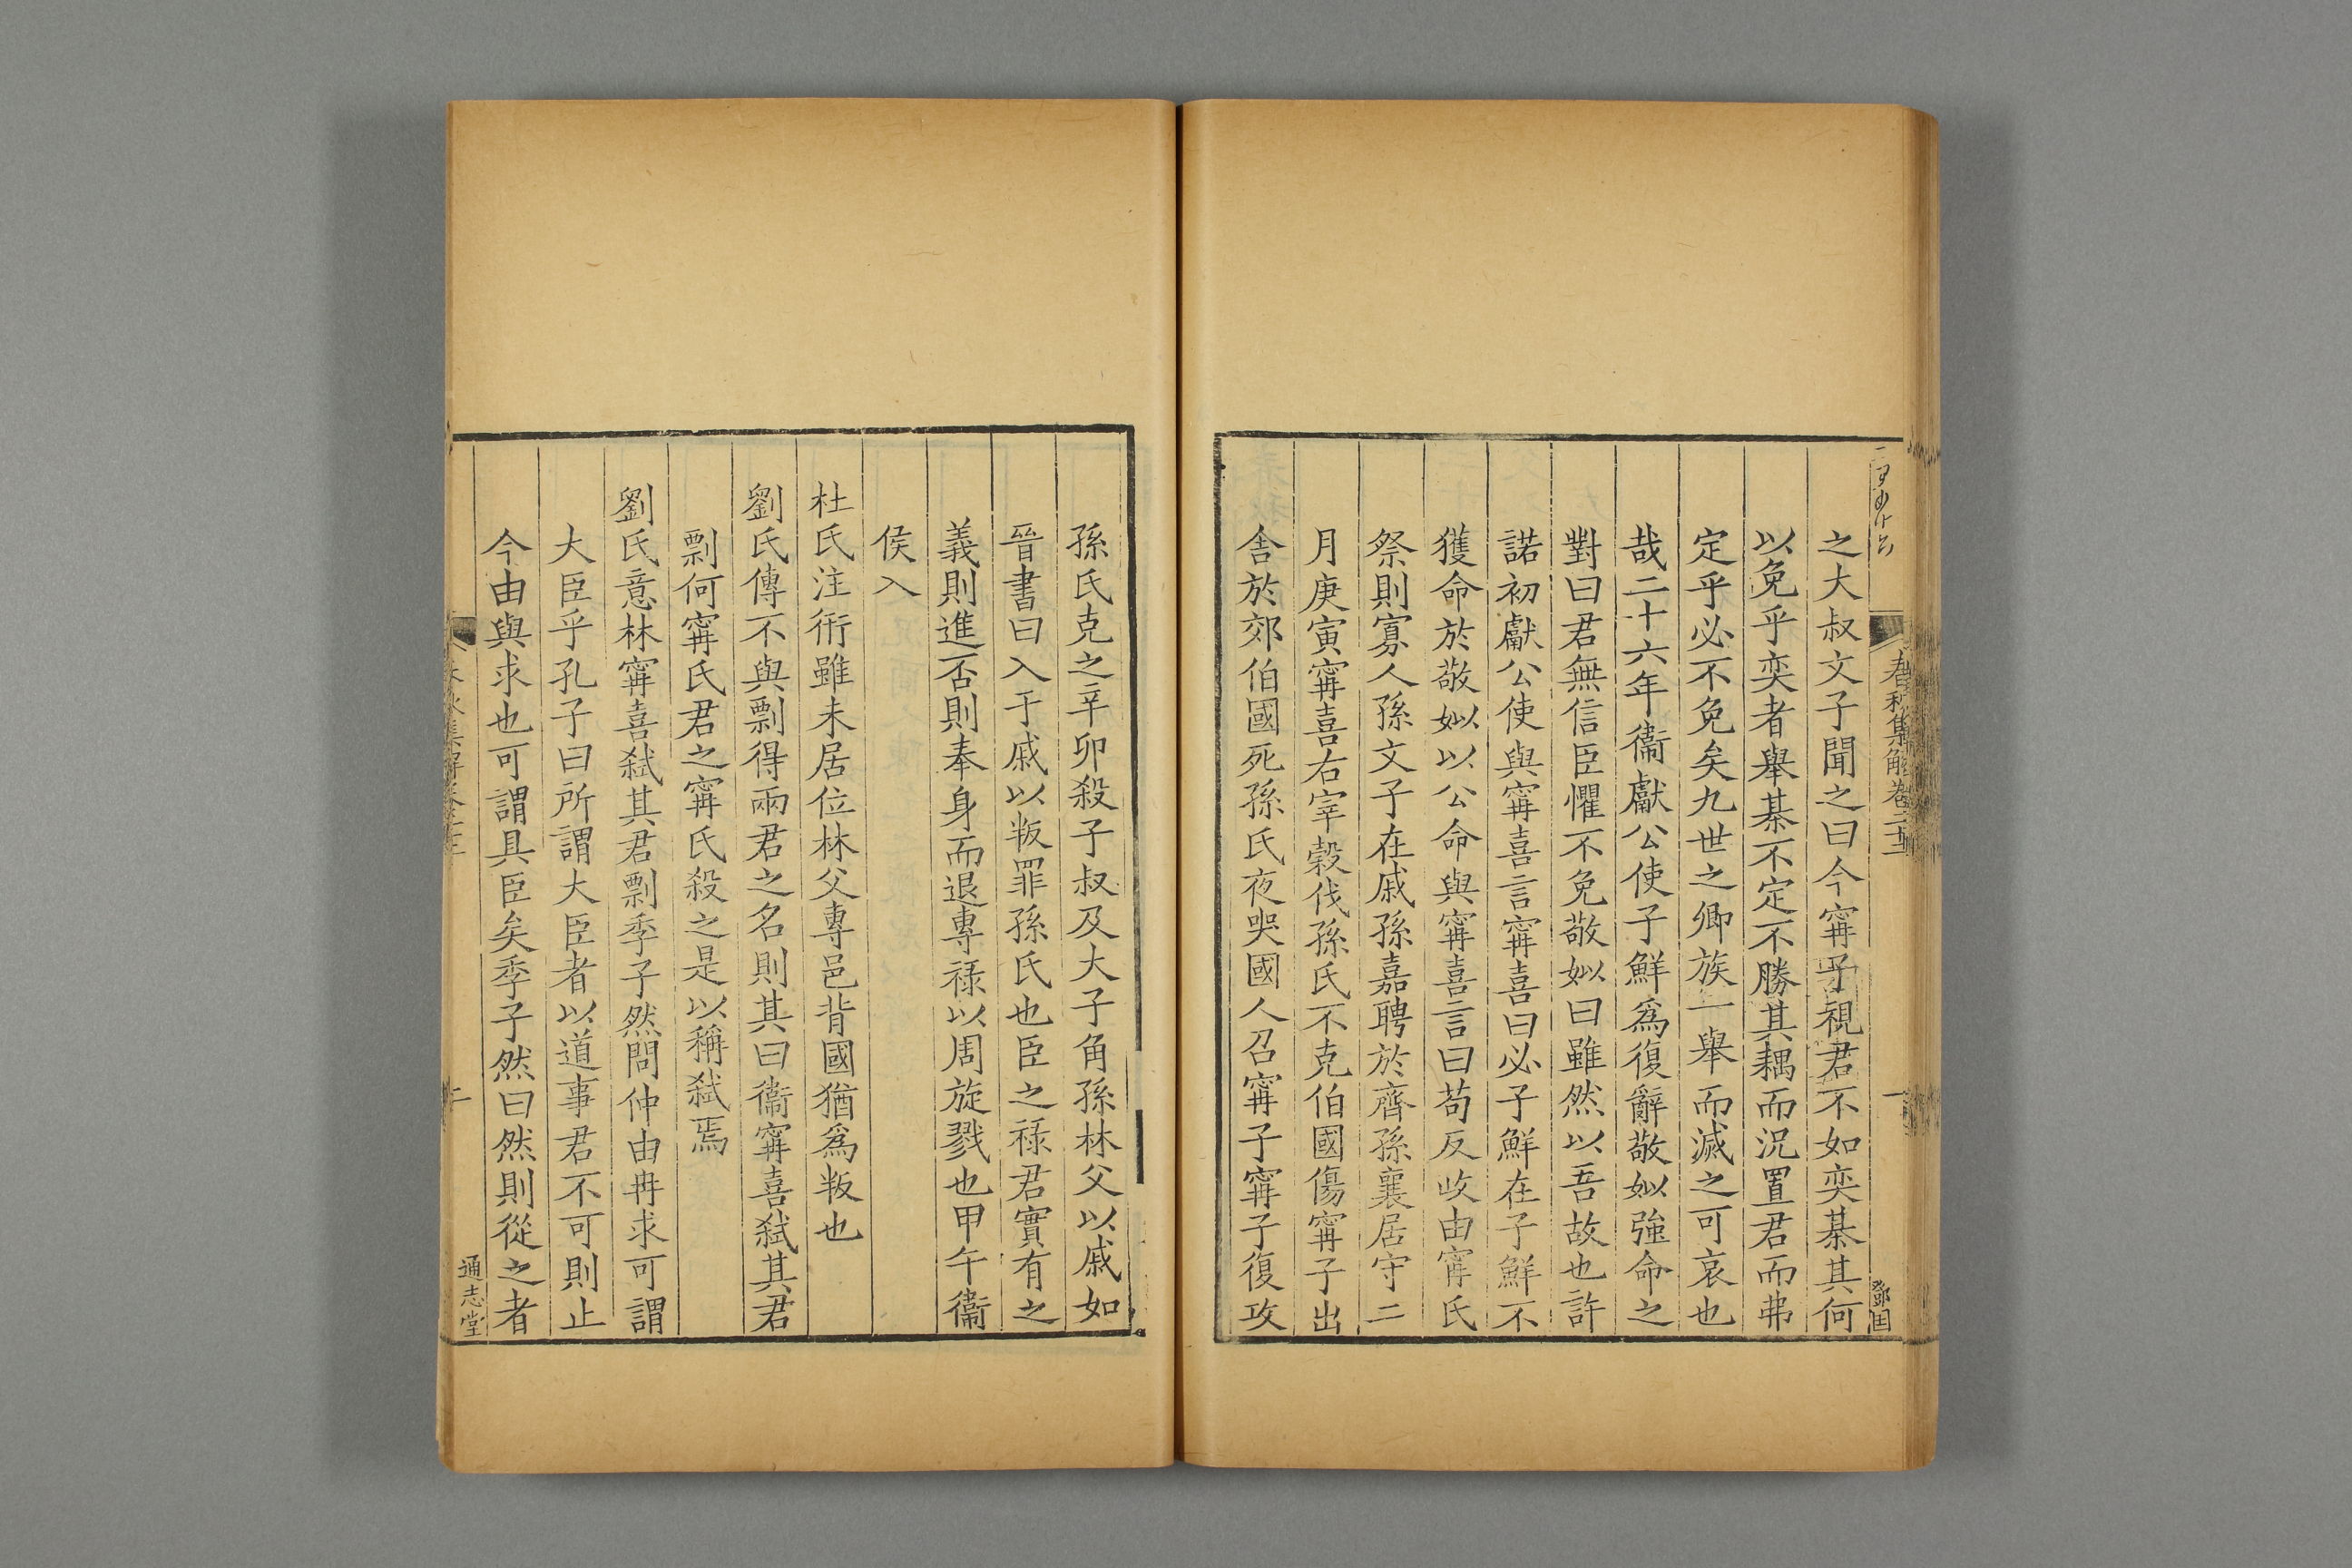 春秋集解卷二十三
一
鄧国
之大叔文子聞之曰今寗子視君不如奕棊其何
以免乎奕者舉棊不定不勝其耦而況置君而弗
定乎必不免矣九世之卿族一舉而滅之可哀也
哉二十六年衞獻公使子鮮爲復辭敬姒強命之
對曰君無信臣懼不免敬姒曰雖然以吾故也許
諾初獻公使與寗喜言寗喜曰必子鮮在子鮮不
獲命於敬姒以公命與寗喜言曰苟反政由寗氏
祭則寡人孫文子在戚孫嘉聘於齊孫襄居守二
月庚寅寗喜右宰穀伐孫氏不克伯國傷寗子出
舍於郊伯國死孫氏夜哭國人召寗子寗子復攻
孫氏克之辛卯殺子叔及大子角孫林父以戚如
晉書曰入于戚以叛罪孫氏也臣之祿君實有之
義則進否則奉身而退專祿以周旋戮也甲午衞
侯入
杜氏注衎雖未居位林父專邑背國猶爲叛也
劉氏傳不與剽得兩君之名則其曰衞寗喜弑其君
剽何寗氏君之寗氏殺之是以稱弑焉
劉氏意林寗喜弑其君剽季子然問仲由冉求可謂
大臣乎孔子曰所謂大臣者以道事君不可則止
今由與求也可謂具臣矣季子然曰然則從之者
二
通志堂